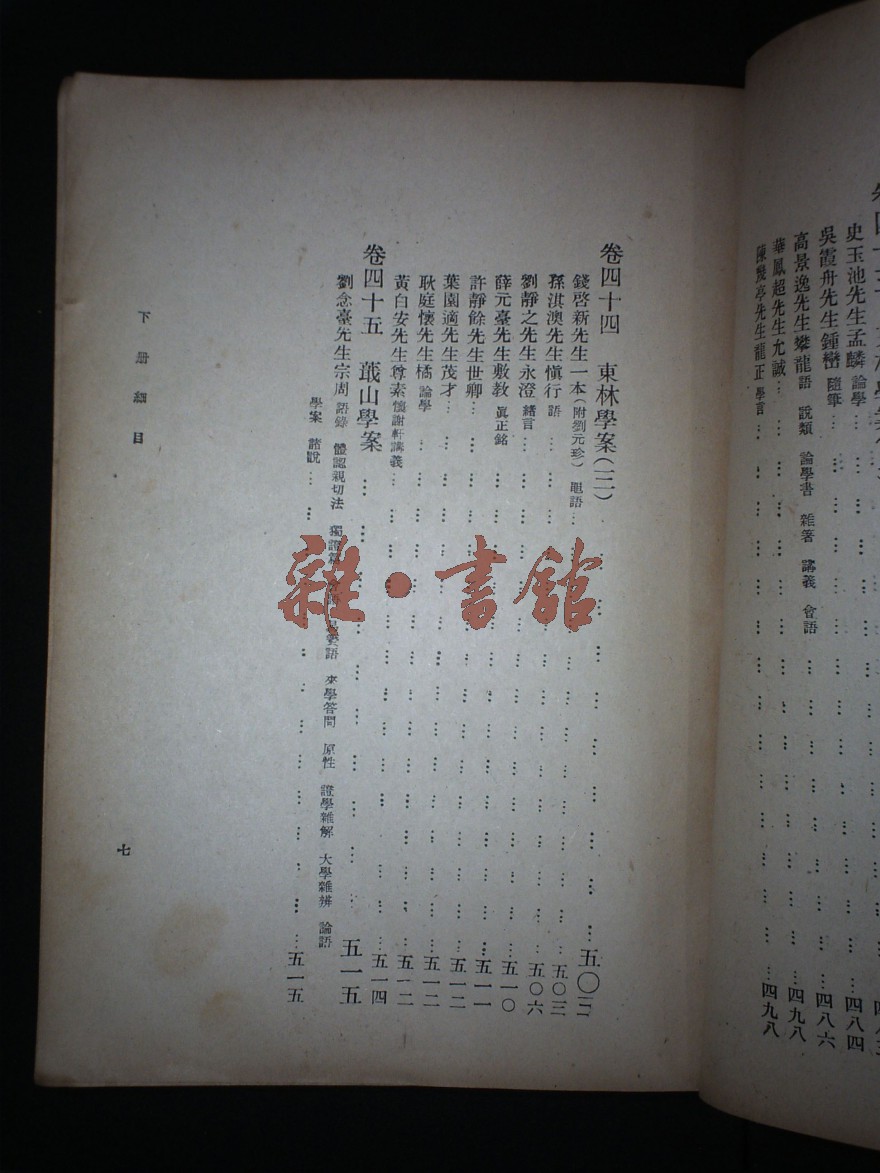 史玉池先生孟麟 論學…四八四
吳霞舟先生鍾巒 隨筆…四八六
高景逸先生攀龍 語 說類 論學書 雜著 講義 會語…四九八
華鳳超先生允誠…四九八
陳幾亭先生龍正 學言
卷四十四 東林學案(三)…五〇三
錢啓新先生一本(附劉元珍) 黽語…五〇三
孫淇澳先生愼行 語…五〇六
劉靜之先生永澄 緒言…五一〇
薛元臺先生敷教 眞正銘…五一一
許靜餘先生世卿…五一二
葉園適先生茂才…五一二
耿庭懷先生橘 論學…五一二
黃白安先生尊素 懷謝軒講義…五一四
卷四十五 蕺山學案…五一五
劉念臺先生宗周 語錄 體認親切法 獨證篇 易簀語 來學答問 原性 證學雜解 大學雜辨 論語
學案 諸說…五一五
下册細目
七
雜·書館